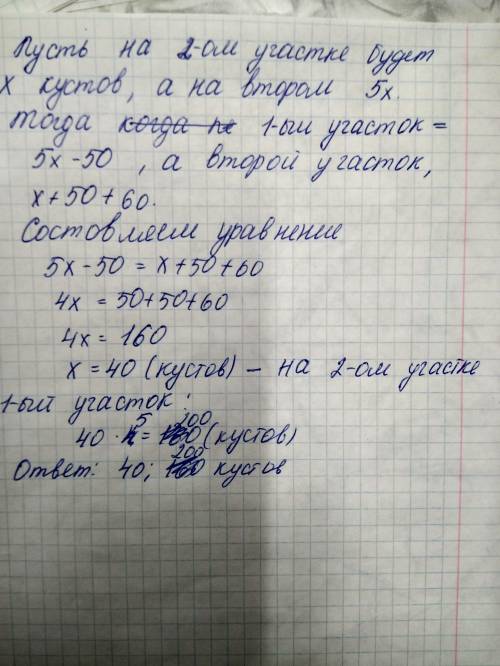 Пусть на 2-ом участке будет
х кустов, а на втором 5х.
Тогда когда не 1-ый участок =
5х - 50 , а второй участок,
х + 50 + 60.
Состовляем уравнение
5х - 50 = х + 50 + 60
4х = 50 + 50 + 60
4х = 160
х = 40 (кустов) - на 2-ом участке
1-ый участок:
40 · 5 = 200 (кустов)
Ответ: 40; 200 кустов